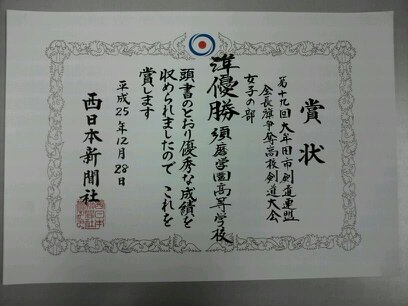 賞状
第十九回大牟田市剣道連盟
会長旗争奪高校剣道大会
女子の部
準優勝 須磨学園高等学校
頭書のとおり優秀な成績を
収められましたので これを
賞します
平成25年12月28日
西日本新聞社